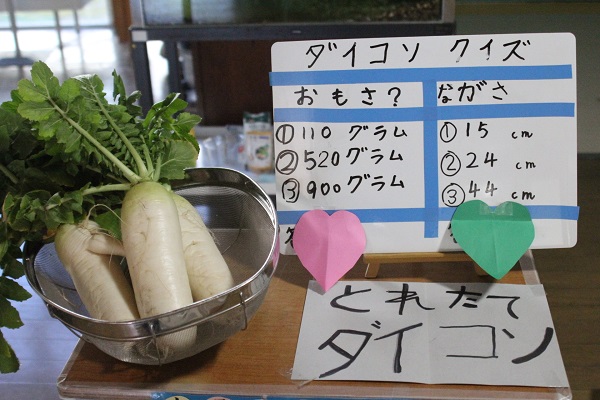 ダイコン クイズ
おもさ?
ながさ
① 110 グラム
② 520 グラム
③ 900 グラム
① 15 cm
② 24 cm
③ 44 cm
とれたて
ダイコン